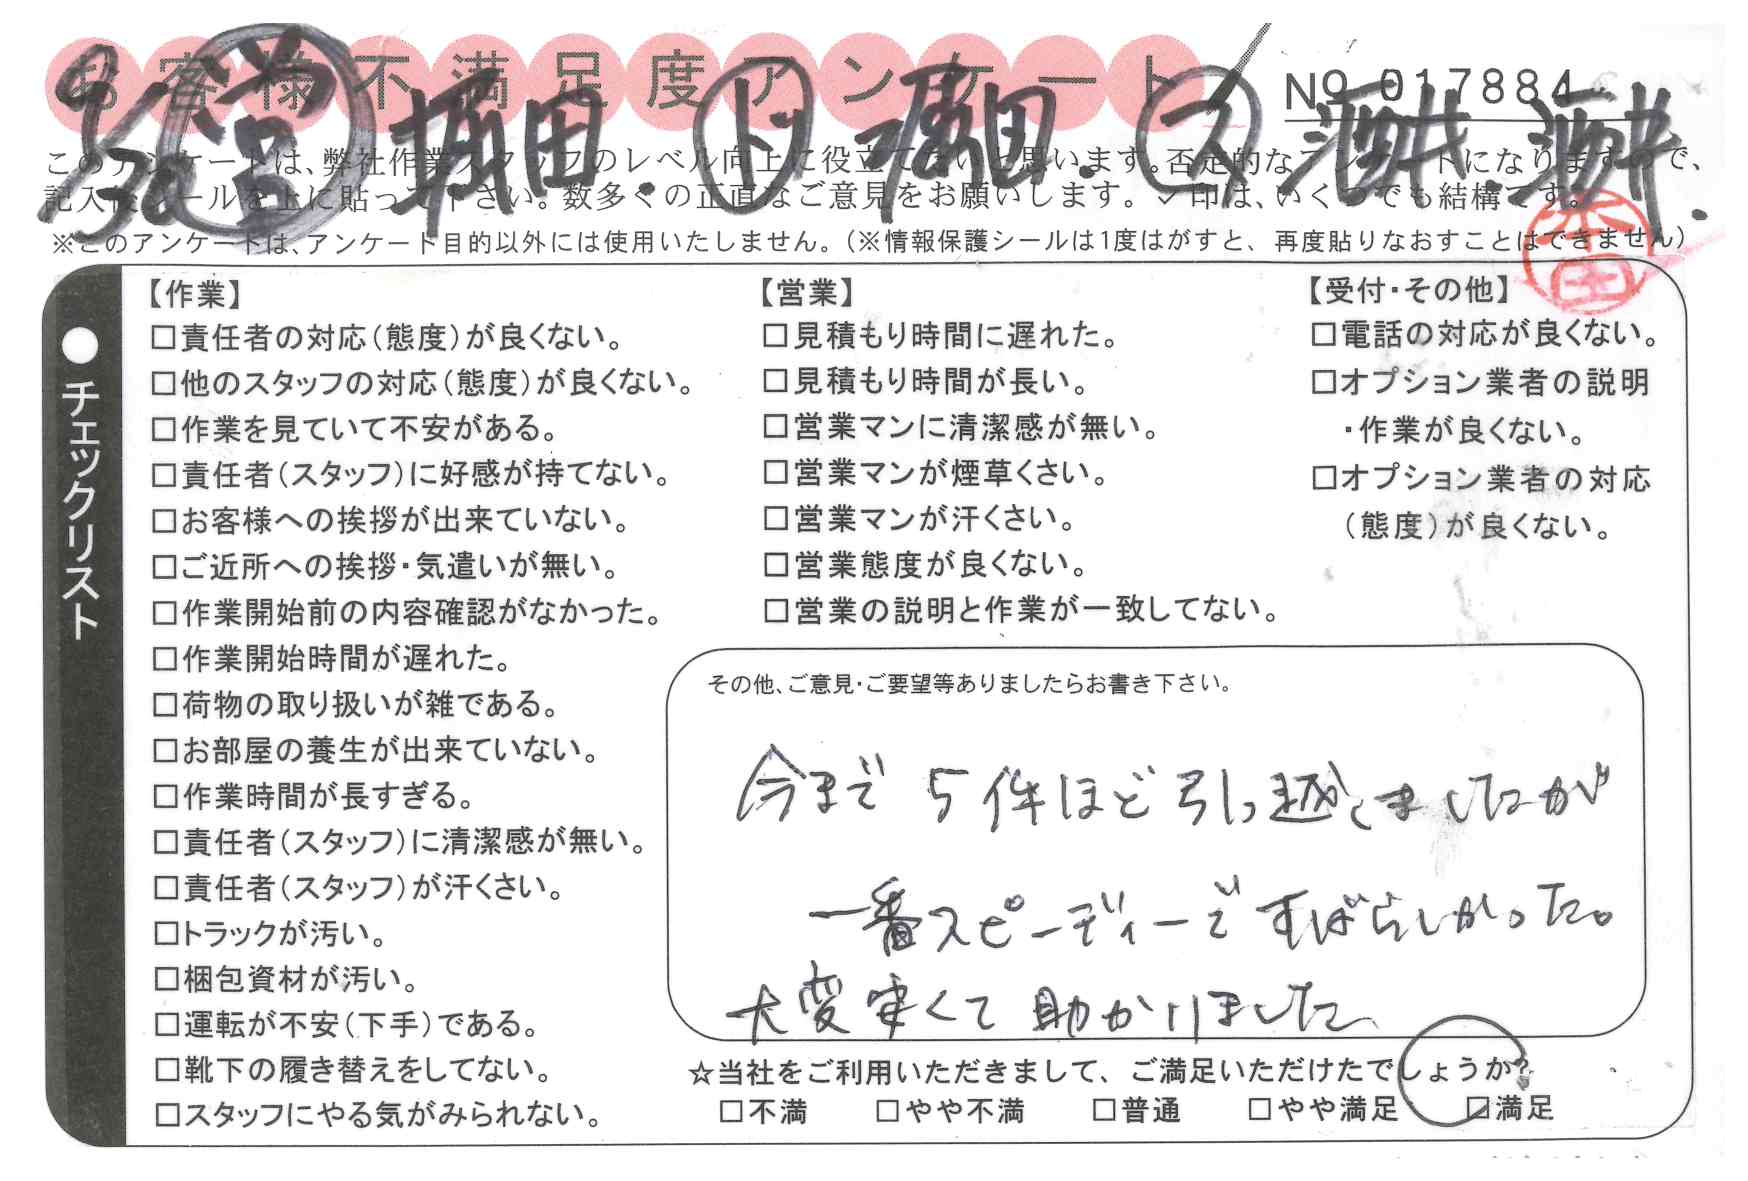 お客様不満足度アンケート
No 017884
5/30 営 堀田. ド 高田. ス 酒井. 酒井.
このアンケートは、弊社作業スタッフのレベル向上に役立てたいと思います。否定的なアンケートになりますので、
記入後シールを上に貼って下さい。数多くの正直なご意見をお願いします。✓印は、いくつでも結構です。
※このアンケートは、アンケート目的以外には使用いたしません。(※情報保護シールは1度はがすと、再度貼りなおすことはできません)
●チェックリスト
【作業】
□責任者の対応(態度)が良くない。
□他のスタッフの対応(態度)が良くない。
□作業を見ていて不安がある。
□責任者(スタッフ)に好感が持てない。
□お客様への挨拶が出来ていない。
□ご近所への挨拶・気遣いが無い。
□作業開始前の内容確認がなかった。
□作業開始時間が遅れた。
□荷物の取り扱いが雑である。
□お部屋の養生が出来ていない。
□作業時間が長すぎる。
□責任者(スタッフ)に清潔感が無い。
□責任者(スタッフ)が汗くさい。
□トラックが汚い。
□梱包資材が汚い。
□運転が不安(下手)である。
□靴下の履き替えをしてない。
□スタッフにやる気がみられない。
【営業】
□見積もり時間に遅れた。
□見積もり時間が長い。
□営業マンに清潔感が無い。
□営業マンが煙草くさい。
□営業マンが汗くさい。
□営業態度が良くない。
□営業の説明と作業が一致してない。
【受付・その他】
□電話の対応が良くない。
□オプション業者の説明
・作業が良くない。
□オプション業者の対応
(態度)が良くない。
その他、ご意見・ご要望等ありましたらお書き下さい。
今まで5件ほど引っ越しましたが
一番スピーディーですばらしかった。
大変安くて助かりました
☆当社をご利用いただきまして、ご満足いただけたでしょうか?
□不満 □やや不満 □普通 □やや満足 ☑満足